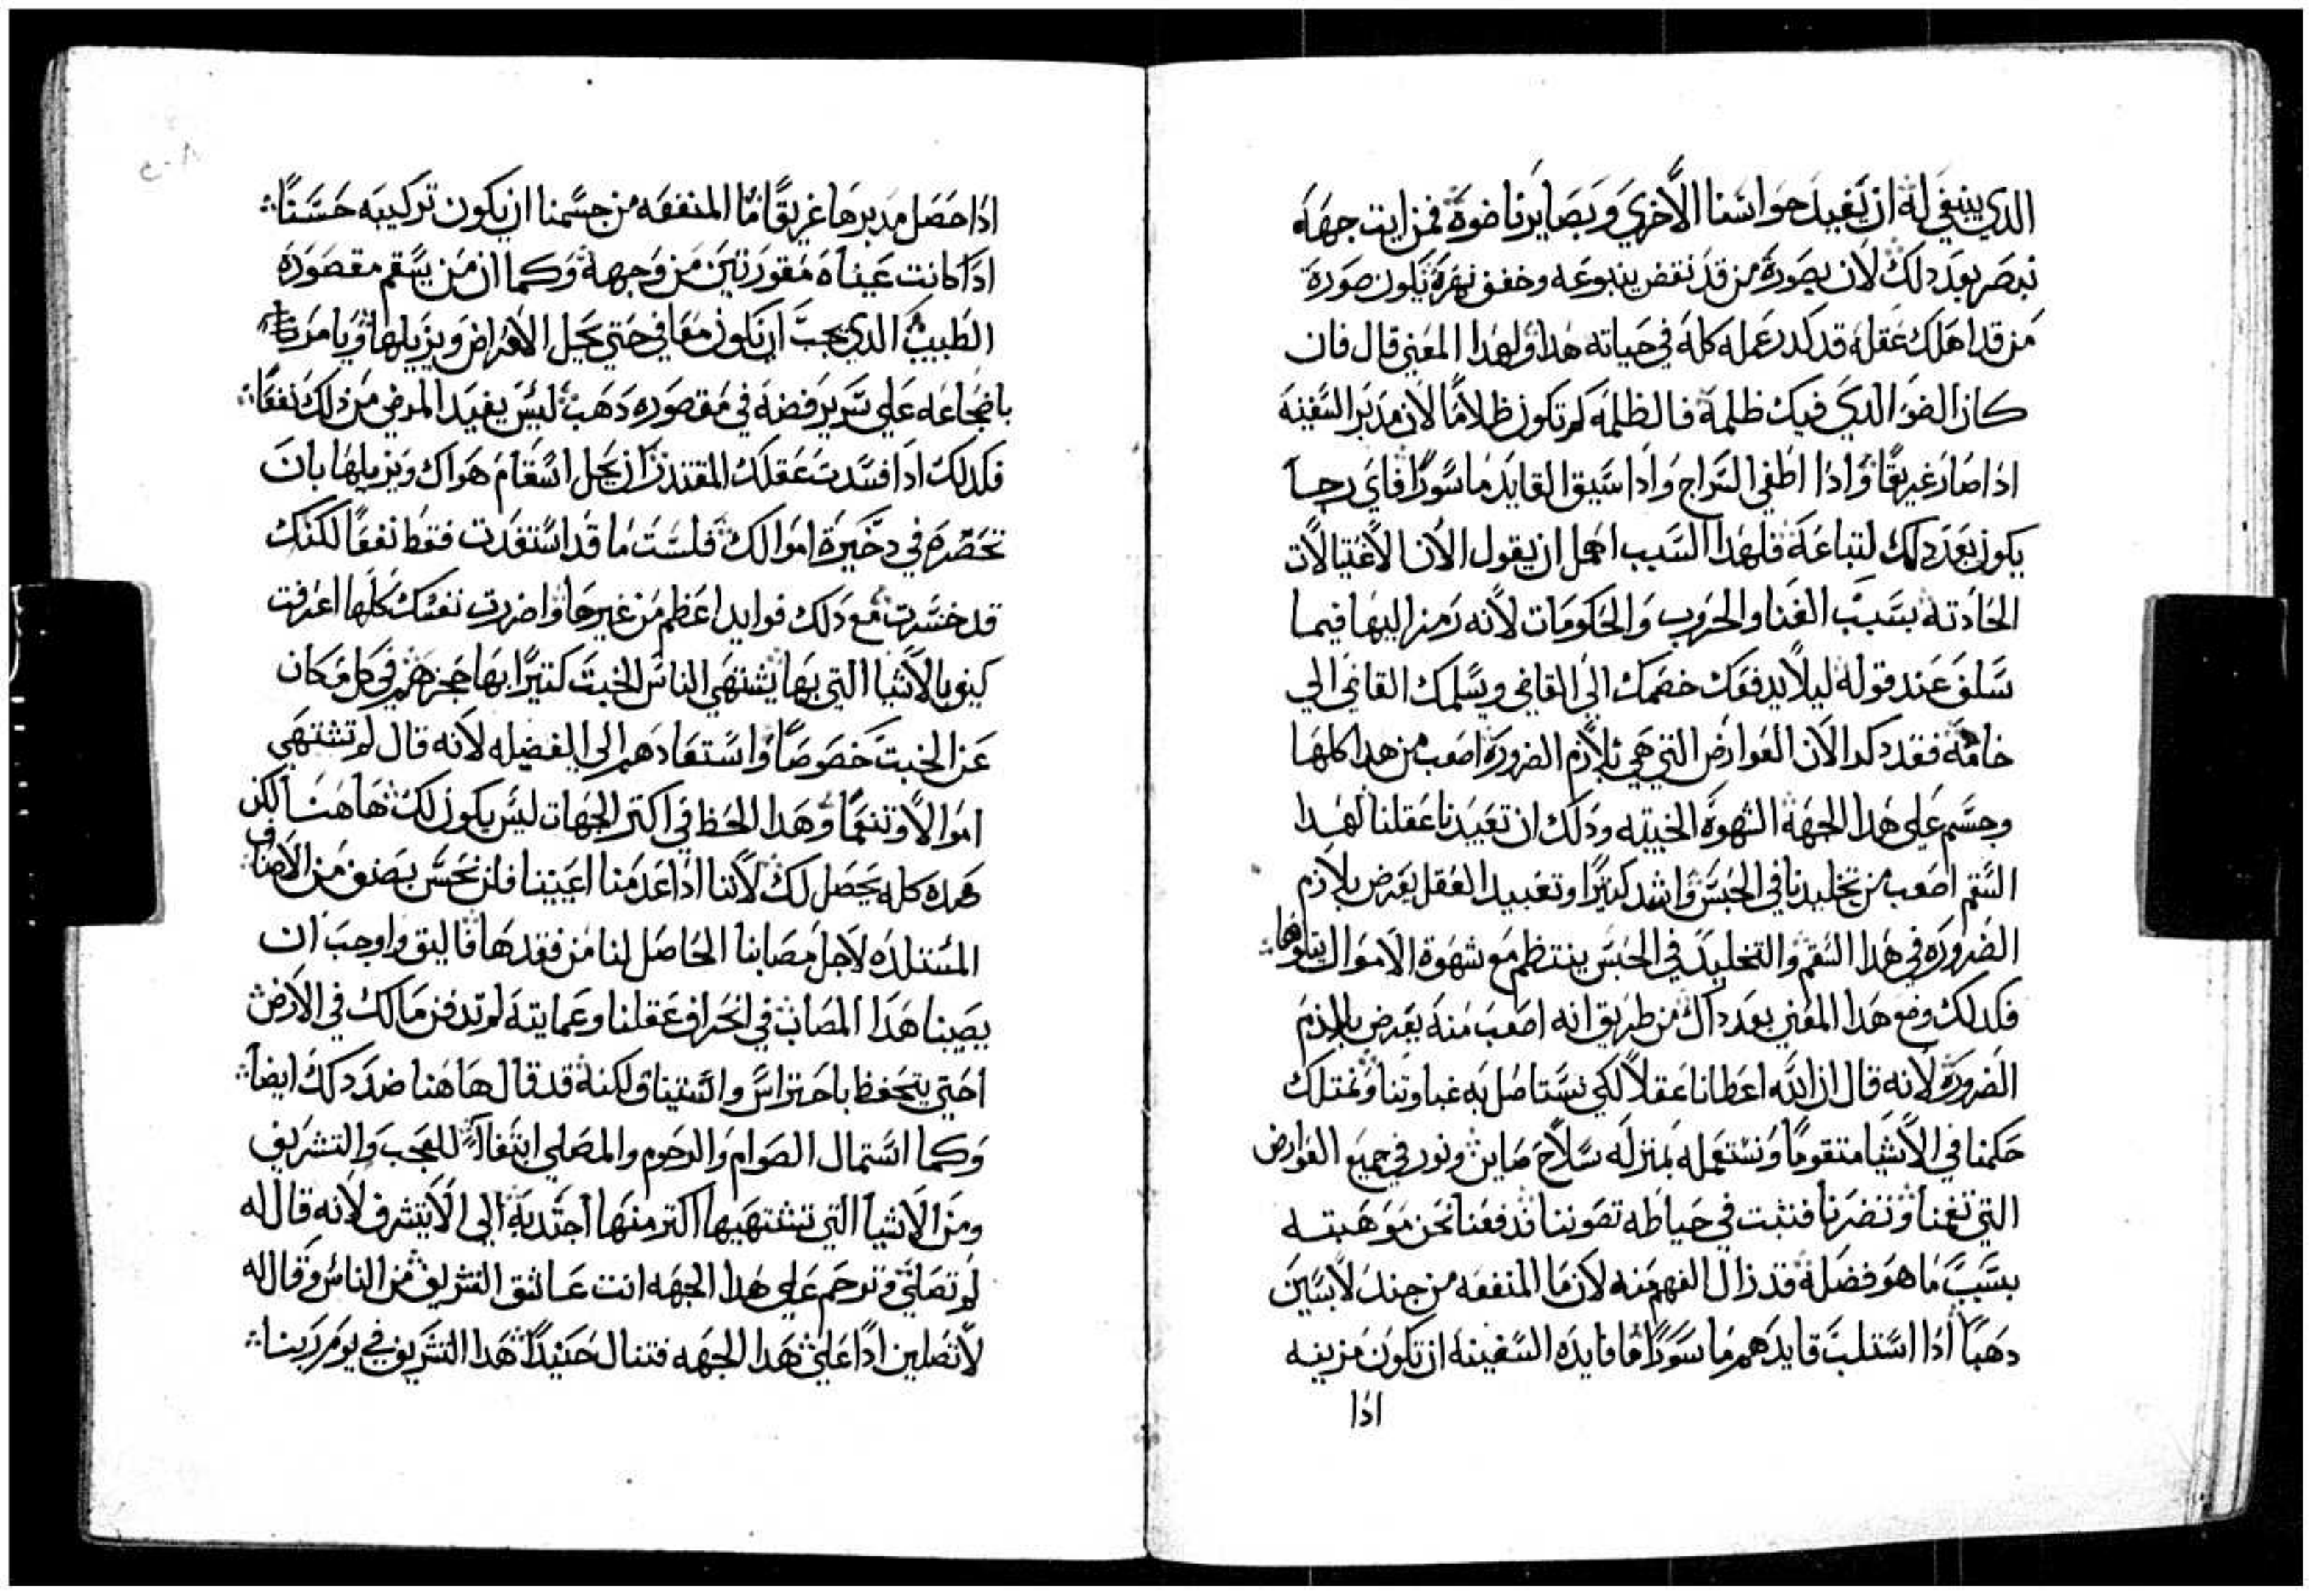 الدي ينبغي له ان يفيد حواسنا الأخري وبصايرنا ضوه فمن اين جهه
نبصر بعد دلك لان بصورة من قد نقض ينبوعه وخفف نهره تكون صورة
من قد اهلك عقله قد كدر عمله كله في حياته هدا ولهدا المعني قال فان
كان الضو الدي فيك ظلمة فالظلمه كم تكون ظلامًا لان مدبر السفينه
اذا صار غريقًا واذا اطفي السراج واذا سيق القايد ماسورًا فاي رجا
يكون بعد دلك لتباعه فلهدا السبب اهمل ان يقول الان الاغتيالات
الحادته بسبب الغنا والحروب والحكومات لانه رمز اليها فيما
سلف عند قوله ليلا يدفعك خصمك الي القاضي ويسلمك القاضي الي
خادمه فقد دكر الان العوارض التي هي بلازم الضرورة اصعب من هدا كلها
وجسم علي هدا الجهة الشهوة الخبيته ودلك ان تعبيدنا عقلنا لهدا
السقم اصعب من تخليدنا في الحبس واشد كتيرًا وتعبيد العقل يعرض بلازم
الضروره في هدا السقم والتخليد في الحبس ينتظم مع شهوة الاموال يتلوها
فكدلك وضع هدا المعني بعد داك من طريق انه اصعب منه يعرض بلازم
الضرورة لانه قال ان الله اعطانا عقلاً لكي نستاصل به غباوتنا ونمتلك
حكمنا في الأشيا متقومًا ونستعمله بمنزله سلاح صاين ونور في جميع العوارض
التي تغمنا وتضرنا فنتبت في حياطه تصوننا فدفعنا نحن موهبته
بسبب ما هو فضله قد زال الفهم منه لان ما المنفعه من جند لابسين
دهبًا اذا استلب قايدهم ماسورًا ما فايده السفينه ان تكون مزينه
اذا
اذا حصل مدبرها غريقًا ما المنفعه من جسمنا ان يكون تركيبه حسنًا
اذا كانت عيناه مقورتين من وجهه وكما ان من يسقم مقصوره
الطبيب الدي يجب ان يكون معافي حتي يحيل الامراض ويزيلها ويامر
باضجاعه علي سرير فضه في مقصوره دهب ليس يفيد المرضي من ذلك نفعًا
فكدلك اذا فسدت عقلك المقتدر ان يحل اسقام هواك ويزيلها بان
تحصره في دخيرة اموالك فلست ما قد استفدت فقط نفعًا لكنك
قد خسرت مع دلك فوايد اعظم من غيرها واضررت نفسك كلها اعرفت
كيف بالاشيا التي بها يشتهي الناس الخبت كتيرًا بها حجزهم في كل مكان
عن الخبت خصوصًا واستعادهم الي الفضيله لانه قال لم تشتهي
اموالًا وتنعمًا وهدا الحظ في اكتر الجهات ليس يكون لك هاهنا لكن
هده كله يحصل لك لأننا اذا عدمنا اعيننا فلن نحس بصنف من الاصناف
المستلده لاجل مصابنا الحاصل لنا من فقدها فاليق واوجب ان
يصيبنا هدا المصاب في انحراف عقلنا وعمايته لم تدفن مالك في الارض
احتي يتحفظ باحتراس واستيثاق لكنه قد قال هاهنا ضد دلك ايضًا
وكما استمال الصوام والرحوم والمصلي ابتغاآ للعجب والتشريف
ومن الاشيا التي تشتهيها اكتر منها اجتدبه الي الا يتشرف لانه قال له
لم تصلي وترحم علي هدا الجهه انت عاشق التشريف من الناس وقال له
لا تصلين اذًا علي هدا الجهه فتنال حينيدًا هدا التشريف في يوم ربنا